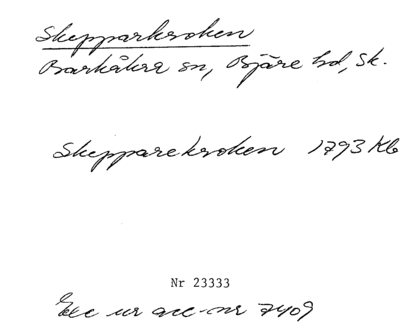 Skepparkroken
Barkåkra sn, Bjäre hd, Sk.
Skepparekroken 1793 Kb
Nr 23333
Exc ur acc-nr 7409